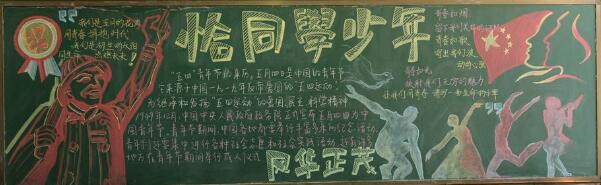 恰同學少年
我们是五月的花海
用青春拥抱时代
我们是初生的太阳
用生命点燃未来！
"五四"青年节的来历，五月四日是中国的青年节
它来源于中国一九一九年反帝爱国的"五四运动"，
为继承和发扬"五四运动"的爱国、民主、科学精神
1949年12月，中国中央人民政府政务院正式宣布五月四日为中
国青年节，青年节期间，中国各地都要举行丰富多彩的纪念活动，
青年们还要集中进行各种社会志愿和社会实践活动，还有许多
地方在青年节期间举行成人仪式
风华正茂
青春如烟
青春如歌
青春如光